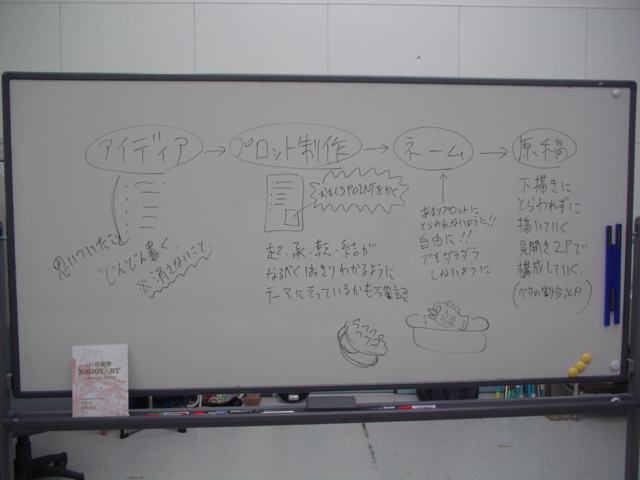 アイディア → プロット制作 → ネーム → 原稿
思いついたこと
どんどん書く。
※消さないこと
おもしろPOINTをかく
起、承、転、結が
なるべくはっきりわかるように
テーマにそっているかも再確認
あまりプロットに
とらわれないように!!
自由に!!
でもダラダラ
しないように
下描きに
とらわれずに
描いていく
見開き2Pで
構成していく。
(ベタの割合とか)